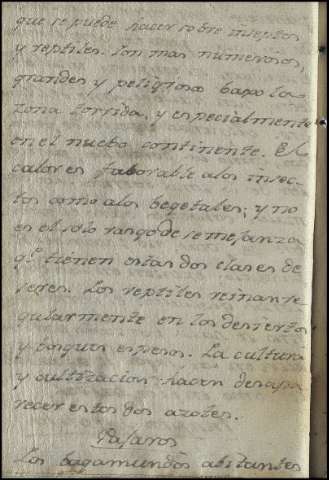 que se puede hacer sobre insectos
y reptiles. Son mas numerosos,
grandes y peligrosos baxo la
zona torrida, y especialmente
en el nuebo continente. El
calor es faborable a los insec-
tos como a los begetales; y no
es el solo rango de semejanza
qe. tienen estas dos clases de
seres. Los reptiles reinan re-
gularmente en los desiertos
y bosques espesos. La cultura
y cibilizacion hacen desapa
recer estos dos azotes.
Pajaros
Los bagamundos abitantes